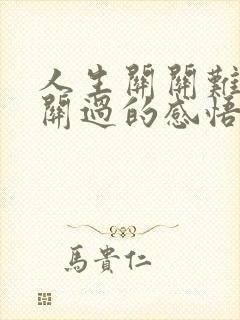 人生關關難
關過的感悟
馬貴仁